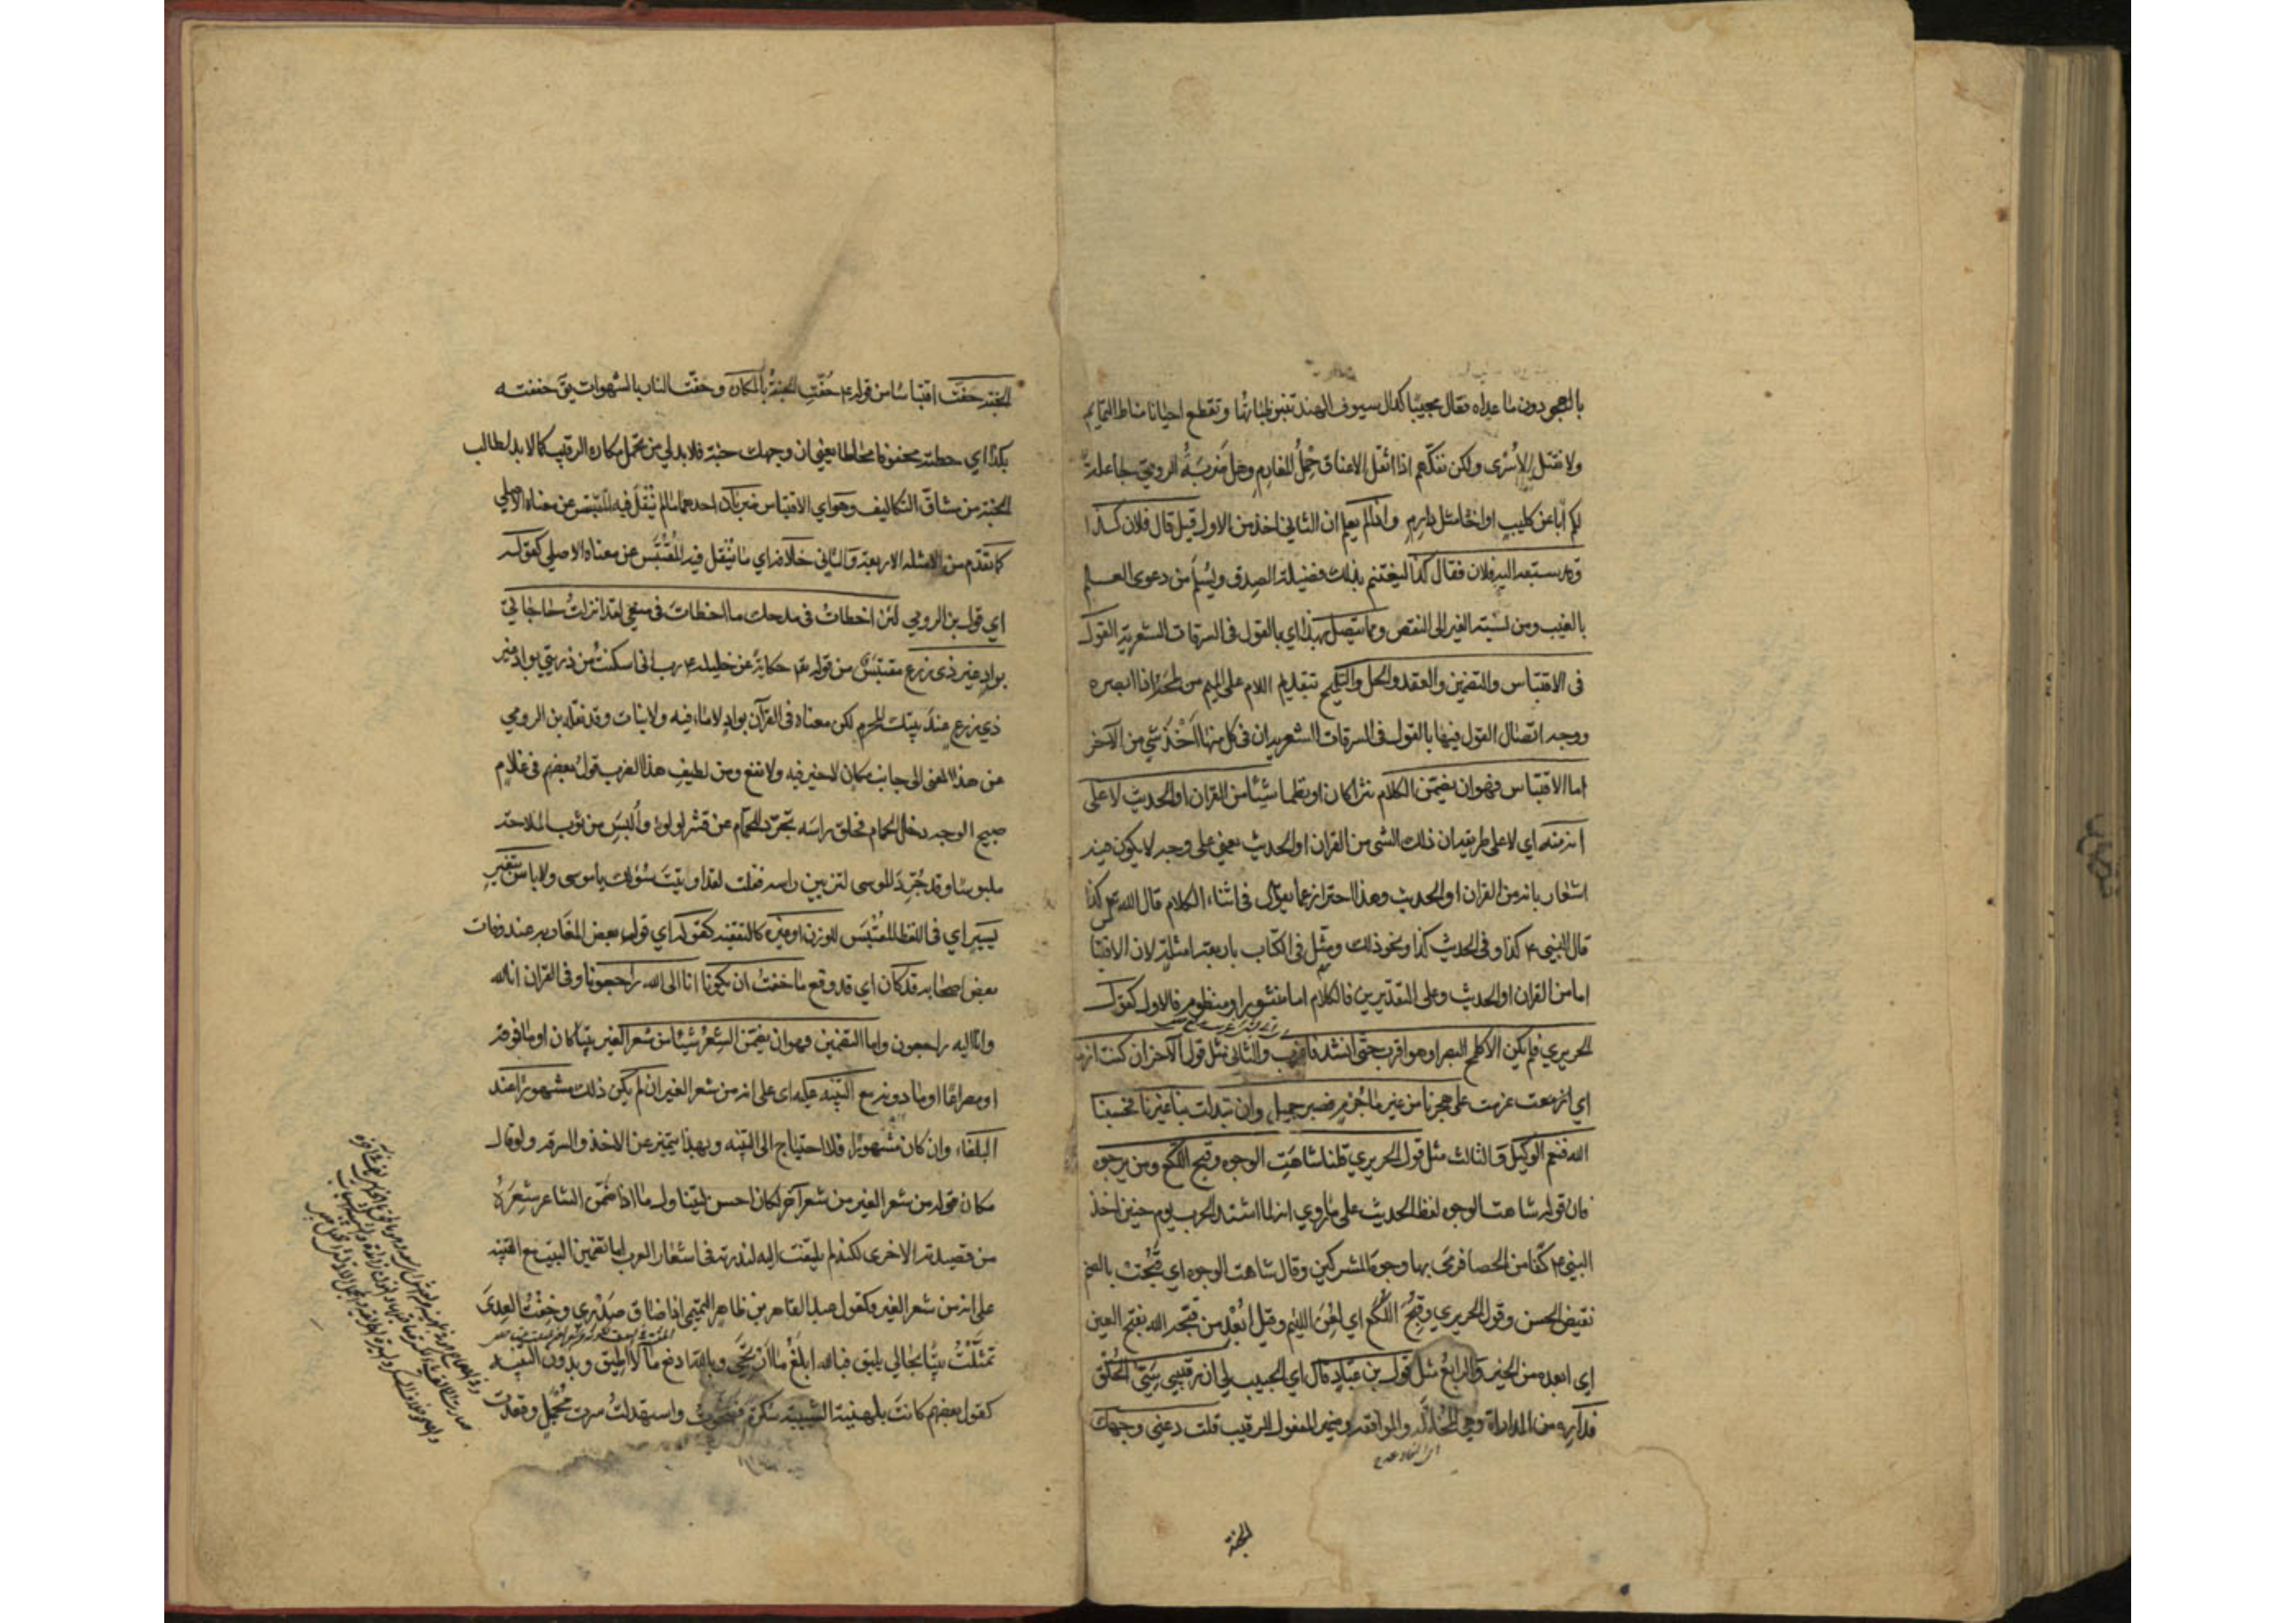 بالهجو دون ما عداه فقال مجيبا كذاك سيوف الهند تنبو ظباتها وتقطع احيانا مناط التمايم
ولا نقتل الاسرى ولكن نفكهم اذا اثقل الاعناق حمل المغارم وهل ضربة الرومي جاعلة
لكم ابا عن كليب او اخا مثل دارم واذا لم يعلم ان الثاني اخذ من الاول قيل قال فلان كذا
وقد سبقه اليه فلان فقال كذا ليغتنم بذلك فضيلة الصدق ويسلم من دعوى العلم
بالغيب ومن نسبة الغير الى النقص ومما يتصل بهذا اي بالقول في السرقات الشعرية القول
في الاقتباس والتضمين والعقد والحل والتلميح بتقديم اللام على الميم من لمحه اذا ابصره
ووجه اتصال القول فيها بالقول في السرقات الشعرية ان في كل منها اخذ شي من الآخر
اما الاقتباس فهو ان يضمن الكلام نثرا كان او نظما شيئا من القران او الحديث لا على
انه منه اي لا على طريقة ان ذلك الشي من القران او الحديث يعني على وجه لا يكون فيه
اشعار بانه من القران او الحديث وهذا احتراز عما يقال في اثناء الكلام قال الله تع كذا
قال النبي ع كذا وفي الحديث كذا ونحو ذلك ومثل في الكتاب باربعة امثلة لان الاقتبا
اما من القران او الحديث وعلى التقديرين فالكلام اما منثور او منظوم فالاول كقول
الحريري فلم يكن الا كلمح البصر او هو اقرب حتى انشد فاغرب والثاني مثل قول الآخر ان كنت ازمعت
اي ازمعت عزمت على هجرنا من غير ما جرم فصبر جميل وان تبدلت بنا غيرنا فحسبنا
الله فنعم الوكيل والثالث مثل قول الحريري قلنا شاهت الوجوه وقبح اللكع ومن يرجوه
فان قوله شاهت الوجوه لفظ الحديث على ما روي انه لما اشتد الحرب يوم حنين اخذ
النبي ع كفا من الحصا فرمى بها وجوه المشركين وقال شاهت الوجوه اي قبحت بالضم
نقيض الحسن وقول الحريري وقبح اللكع اي لعن اللئيم وقيل ابعد من قبحه الله بفتح العين
اي ابعده من الخير والرابع مثل قول بن عباد قال اي الحبيب لي ان رقيبي سيئ الخلق
فداره من المداراة وهي المخاتلة والموافقة وضمير المفعول للرقيب قلت دعني وجهك
الجنة
الجنة حفت اقتباسا من قوله ع حفت الجنة بالمكاره وحفت النار بالشهوات يق حففته
بكذا اي جعلته محفوفا محاطا يعني ان وجهك جنة فلا بد لي من تحمل مكاره الرقيب كما لا بد لطالب
الجنة من مشاق التكاليف وهو اي الاقتباس ضربان احدهما ما لم ينقل فيه المقتبس عن معناه الاصلي
كما تقدم من الامثلة الاربعة والثاني خلافه اي ما ينقل فيه المقتبس عن معناه الاصلي كقوله
اي قول بن الرومي لئن اخطات في مدحك ما اخطات في منعي لقد انزلت حاجاتي
بواد غير ذي زرع مقتبس من قوله تع حكاية عن خليله ع رب اني اسكنت من ذريتي بواد غير
ذي زرع عند بيتك المحرم لكن معناه في القرآن بواد لا ماء فيه ولا نبات وقد نقله بن الرومي
عن هذا المعنى الى جانب مكان لا خير فيه ولا نفع ومن لطيف هذا الضرب قول بعضهم في غلام
صبيح الوجه دخل الحمام فحلق راسه تجرد للحمام عن قشر لولوء والبس من ثوب الملاحة
ملبوسا وقد جرد الموسى لتزيين راسه فقلت لقد اوتيت سؤلك يا موسى ولا باس بتغيير
يسير اي في اللفظ المقتبس للوزن او غيره كالتقفيه كقوله اي قول بعض المغاربه عند وفات
بعض اصحابه قد كان اي قد وقع ما خفت ان يكونا انا الى الله راجعونا وفي القران انا لله
وانا اليه راجعون واما التضمين فهو ان يضمن الشعر شيئا من شعر الغير بيتا كان او ما فوقه
او مصراعا او ما دونه مع التنبيه عليه اي على انه من شعر الغير ان لم يكن ذلك مشهورا عند
البلغاء وان كان مشهورا فلا احتياج الى التنبه وبهذا يتميز عن الاخذ والسرقه ولو قال
مكان قوله من شعر الغير من شعر آخر لكان احسن ليتناول ما اذا ضمن الشاعر شعره
من قصيدته الاخرى لكنه لم يلتفت اليه لندرته في اشعار العرب اما تضمين البيت مع التنبيه
على انه من شعر الغير فكقول عبد القاهر بن طاهر التميمي اذا ضاق صدري وخفت العدى
تمثلت بيتا بحالي يليق فبالله ابلغ ما ارتجي وبالله ادفع ما لا اطيق وبدون التنبيه
كقول بعضهم كانت بلهنية الشبيبة سكرة فصحوت واستبدلت سيرت مجمل وقعدت